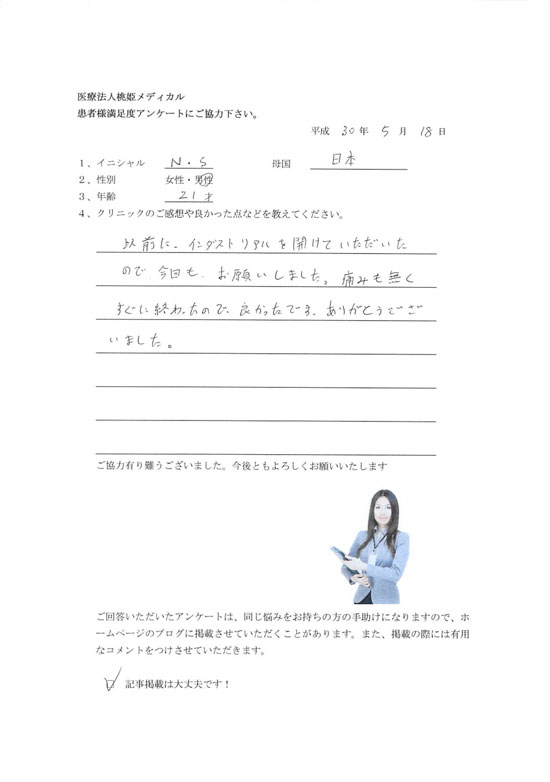 医療法人桃姫メディカル
患者様満足度アンケートにご協力下さい。
平成 30 年 5 月 18 日
1、イニシャル N・S 母国 日本
2、性別 女性・男性
3、年齢 21才
4、クリニックのご感想や良かった点などを教えてください。
以前に、インダストリアルを開けていただいた
ので、今回も、お願いしました。痛みも無く
すぐに終わったので、良かったです、ありがとうござ
いました。
ご協力有り難うございました。今後ともよろしくお願いいたします
ご回答いただいたアンケートは、同じ悩みをお持ちの方の手助けになりますので、ホ
ームページのブログに掲載させていただくことがあります。また、掲載の際には有用
なコメントをつけさせていただきます。
☑ 記事掲載は大丈夫です！